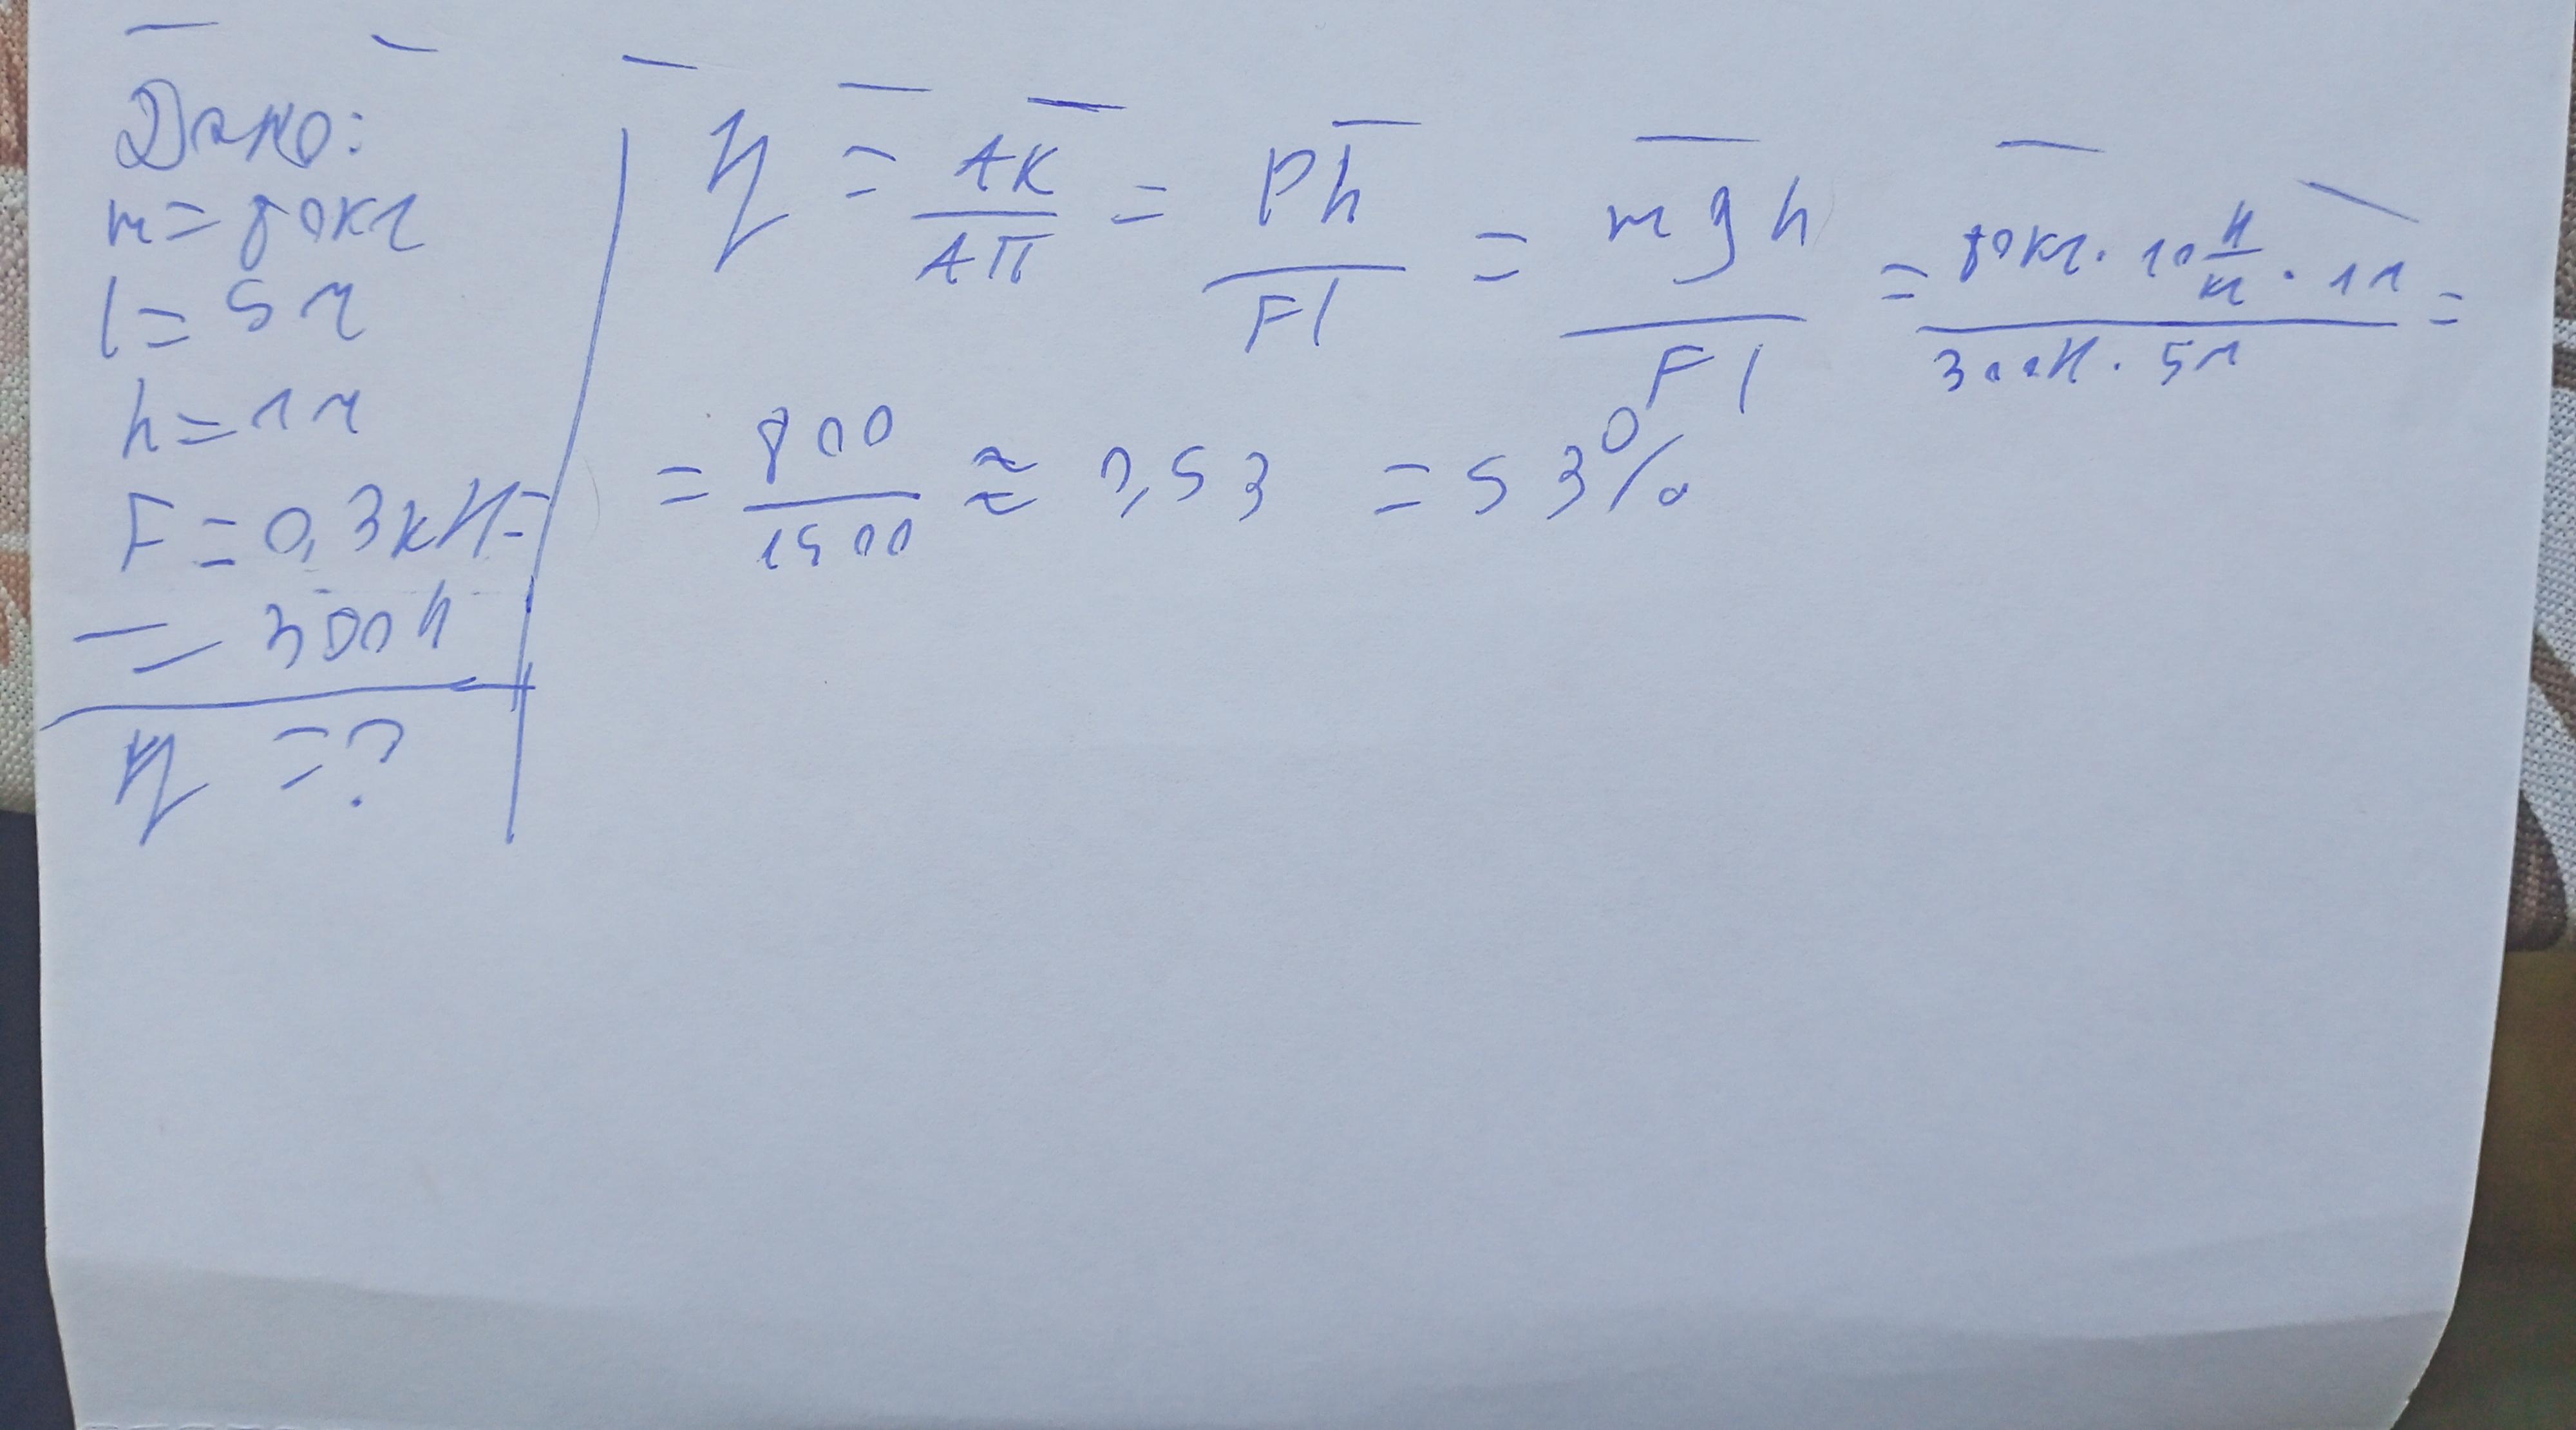 Дано:
m = 80кг
l = 5м
h = 1м
F = 0,3кН =
= 300Н
η = ?
η = Aк/Aп = Ph/Fl = mgh/Fl = 80кг · 10 Н/кг · 1м / 300Н · 5м =
= 800/1500 ≈ 0,53 = 53%